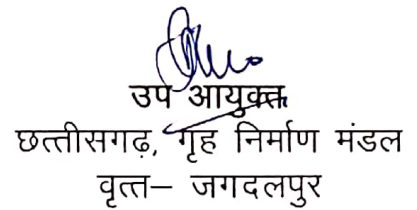 उप आयुक्त
छत्तीसगढ़, गृह निर्माण मंडल
वृत्त– जगदलपुर